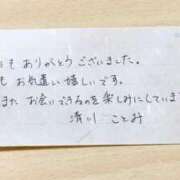 もありがとうございました。
もお気遣い嬉しいです。
またお会いできるのを楽しみにしていま
清川 ことみ